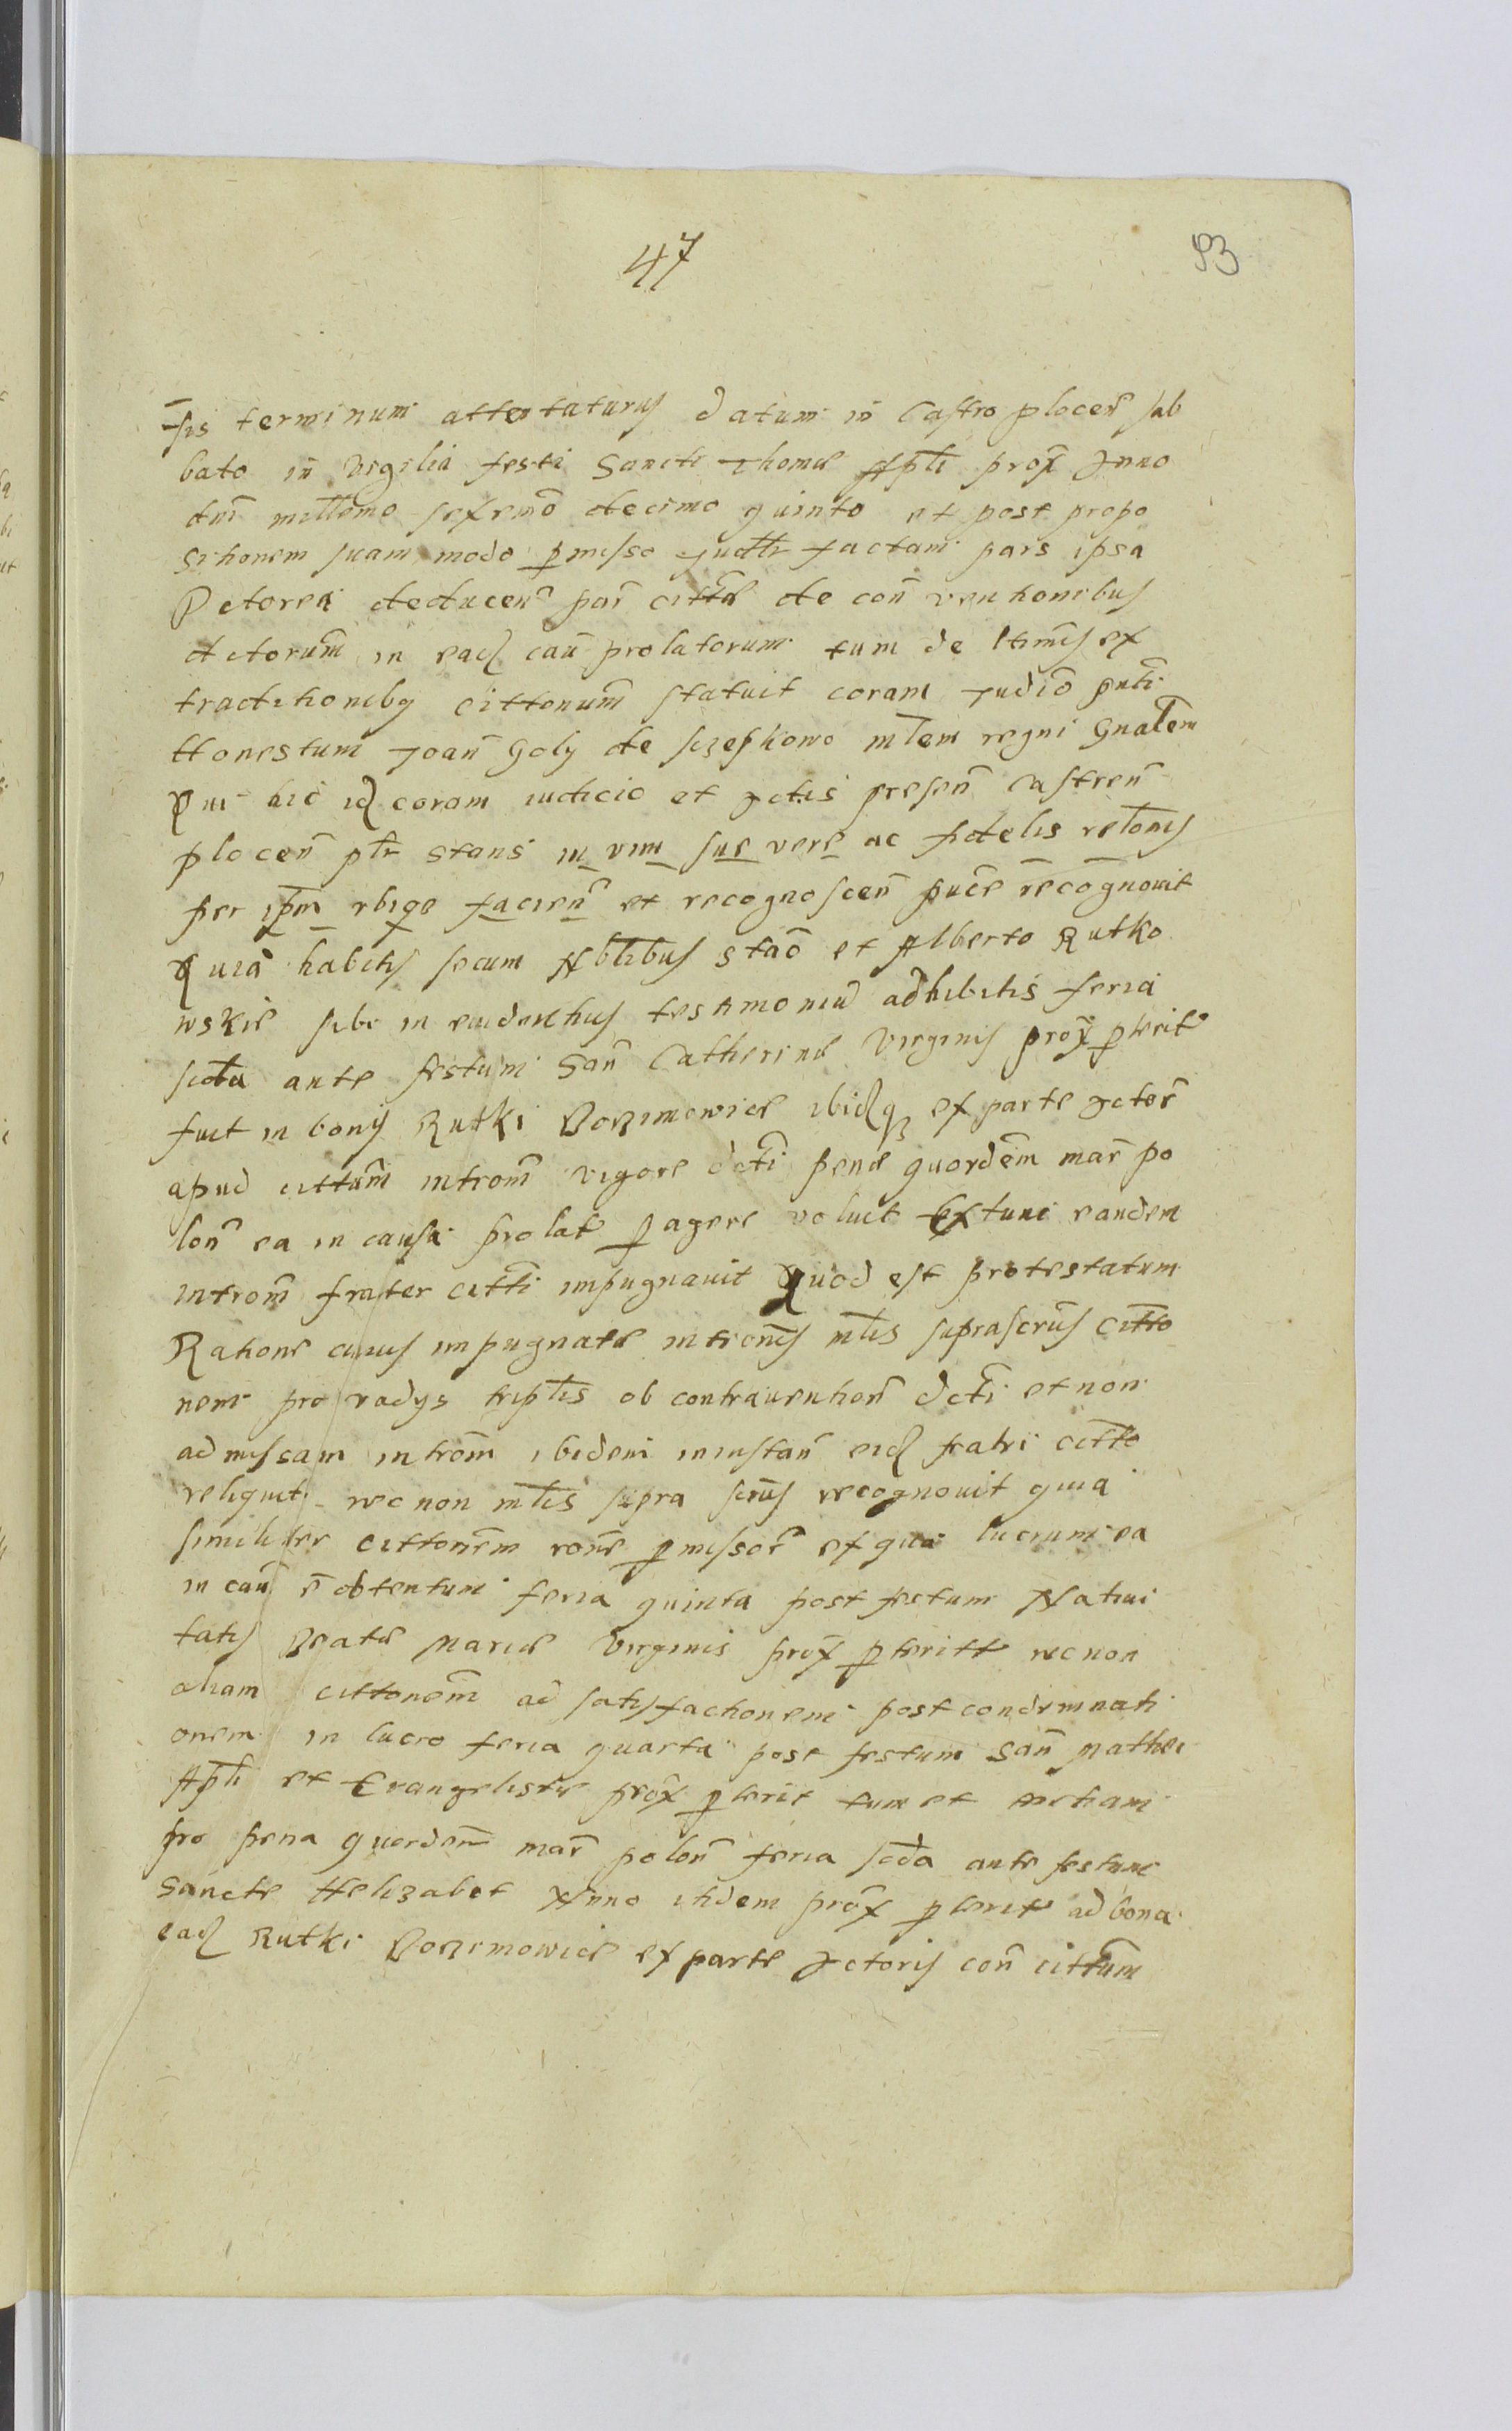 47
93
sis terminum attentaturus datum in Castro plocen̄ sab
bato in vigilia festi Sancti Thomæ Apl̄i prox̄ Anno
dn̄i mill̄emo sexcen̄o decimo quinto et post propo
sitionem suam modo p̄misso Judl̄r factam pars ipsa
Actorea deducen̄ par̄ citt̄æ de con̄ventionibus
dictorum̄ in ead̄ cau̅ prolatorum tum de ex
traditionibq cittonum̄ statuit coram Judiō pn̄ti
Honestum Joan̄ Goly de sczepkowo ml̄em regni Gnal̄em
Qui hic id̄ coram iudicio et Actis presen̄ Castren̄
plocen̄ pl̄r stans in vim sue vere ac fidelis rel̄onis
per ip̄m vbiqe facien̄ et recognoscen̄ puc̄e recognovit
Quia habitis secum Nbl̄ibus Staō et Alberto Rutko
wskie sibi in evidentius testimoniū adhibitis feria
scd̄a ante festum San̄ Catherinæ Virginis prox̄ p̄terit
fuit in bonis Rutki Borzimowice ibid̄q ex parte Actor̄
apud cittum̄ introm̄ vigore dcti penæ quordem̄ mar̄ po
lon̄ ea in causa prolat p̄agere voluit Extunc eandem
introm̄ frater citti impugnavit Quod est protestatum
Ratione cuius impugnatæ intronis̄ ml̄is suprascrus̄ citto
nem pro vadys tripl̄is ob contraventionem̄ dcti et non
admissam introm̄ ibidem in instan̄ eid̄ fratri citto
reliquit necnon ml̄is supra scrus̄ recognovit quia
similiter cittonem̄ rone p̄missor̄ ex quo lucrum ea
in cau̅ ē obtentum feria quinta post festum Nativi
tatis Beatæ Mariæ Virginis prox̄ p̄terit necnon
aliam cittonem̄ ad satisfactionem post condemnati
onem in lucro feria quarta post festum San̄ Mathei
Apl̄i et Evangelistæ prox̄ p̄terit tum et
pro pena quorden̄ mar̄ polon̄ feria scd̄a ante festum
Sancte Helizabet Anno itidem prox̄ p̄terit ad bona
ead̄ Rutki Borzimowice ex parte Actoris con̄ cittum̄